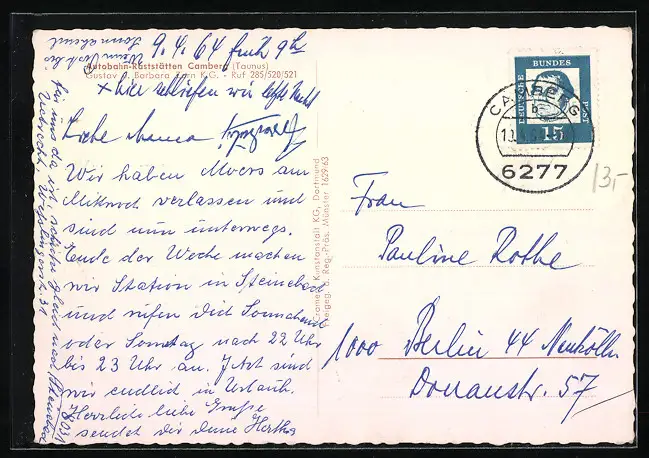 9.4.64 früh 9h
Autobahn-Raststätten Camberg (Taunus)
Gustav u. Barbara Zorn K.G. - Ruf 285/520/521
x hier schliefen wir letzte Nacht
Liebe Mama
Wir haben Moers am
Mittwoch verlassen und
sind nun unterwegs.
Ende der Woche machen
wir Station in Steinebach
und rufen Dich Sonnabend
oder Sonntag nach 22 Uhr
bis 23 Uhr an. Jetzt sind
wir endlich in Urlaub.
Herzliche liebe Grüße
sendet dir deine Hertha
Wenn
Sonnabend
für uns da ist, schreibe gleich nach Steinebach
8031
Cramers Kunstanstalt KG, Dortmund
Freigeg. d. Reg.-Präs. Münster 1629/63
DEUTSCHE
BUNDES
POST
15
CAMBERG
b
6277
13,-
Frau
Pauline Rothe
1000 Berlin 44 Neukölln
Donaustr. 57